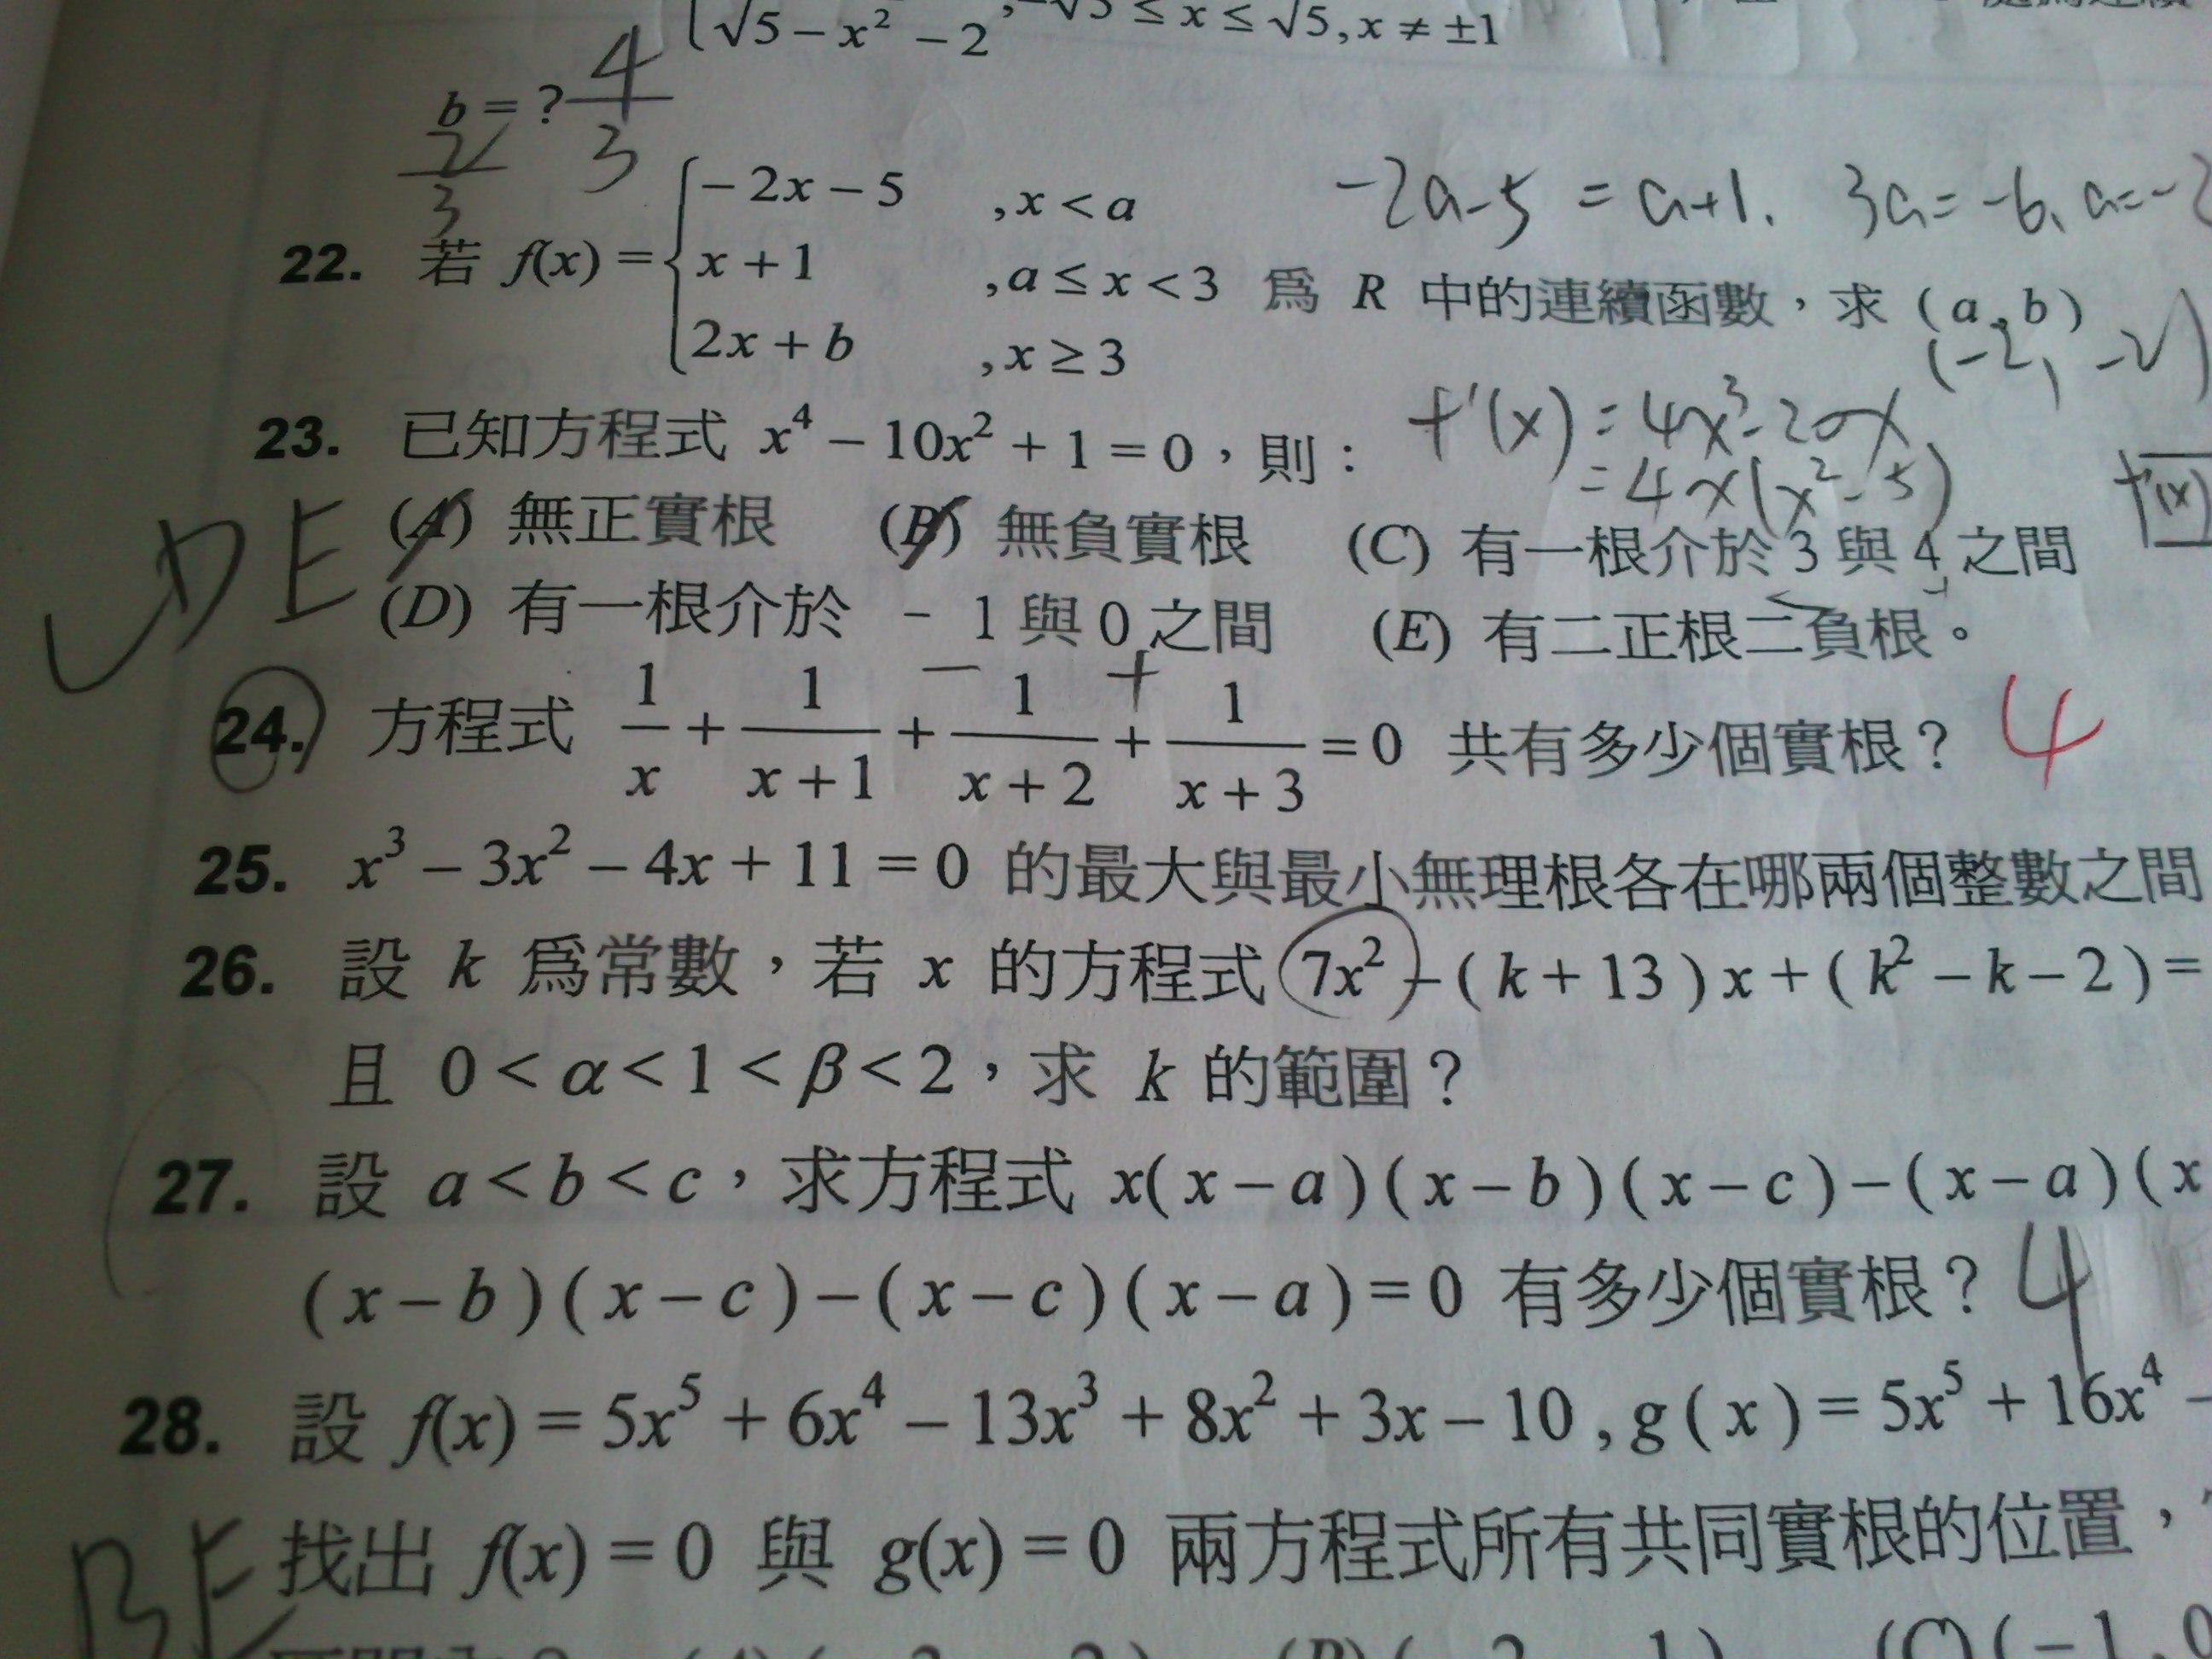 √5－x² －2 ,－√5 ≤ x ≤ √5, x ≠ ±1
b = ? 4/3
2/3
22. 若 f(x) = { －2x－5 , x < a
x + 1 , a ≤ x < 3 爲 R 中的連續函數，求 ( a , b )
2x + b , x ≥ 3
-2a-5 = a+1. 3a = -6, a = -2
(-2, -2)
23. 已知方程式 x⁴ － 10x² + 1 = 0，則：
f'(x) = 4x³ - 20x
= 4x(x² - 5)
f'(x)
DE
(A) 無正實根 (B) 無負實根 (C) 有一根介於 3 與 4 之間
(D) 有一根介於 － 1 與 0 之間 (E) 有二正根二負根。
－ +
24. 方程式 1/x + 1/(x+1) + 1/(x+2) + 1/(x+3) = 0 共有多少個實根？ 4
25. x³ － 3x² － 4x + 11 = 0 的最大與最小無理根各在哪兩個整數之間
26. 設 k 爲常數，若 x 的方程式 7x² － ( k + 13 ) x + ( k² － k － 2 ) =
且 0 < α < 1 < β < 2，求 k 的範圍？
27. 設 a < b < c，求方程式 x( x － a ) ( x － b ) ( x － c ) － ( x － a ) ( x
( x － b ) ( x － c ) － ( x － c ) ( x － a ) = 0 有多少個實根？ 4
28. 設 f(x) = 5x⁵ + 6x⁴ － 13x³ + 8x² + 3x － 10 , g ( x ) = 5x⁵ + 16x⁴ －
找出 f(x) = 0 與 g(x) = 0 兩方程式所有共同實根的位置，
BE
(C) ( － 1 , 0